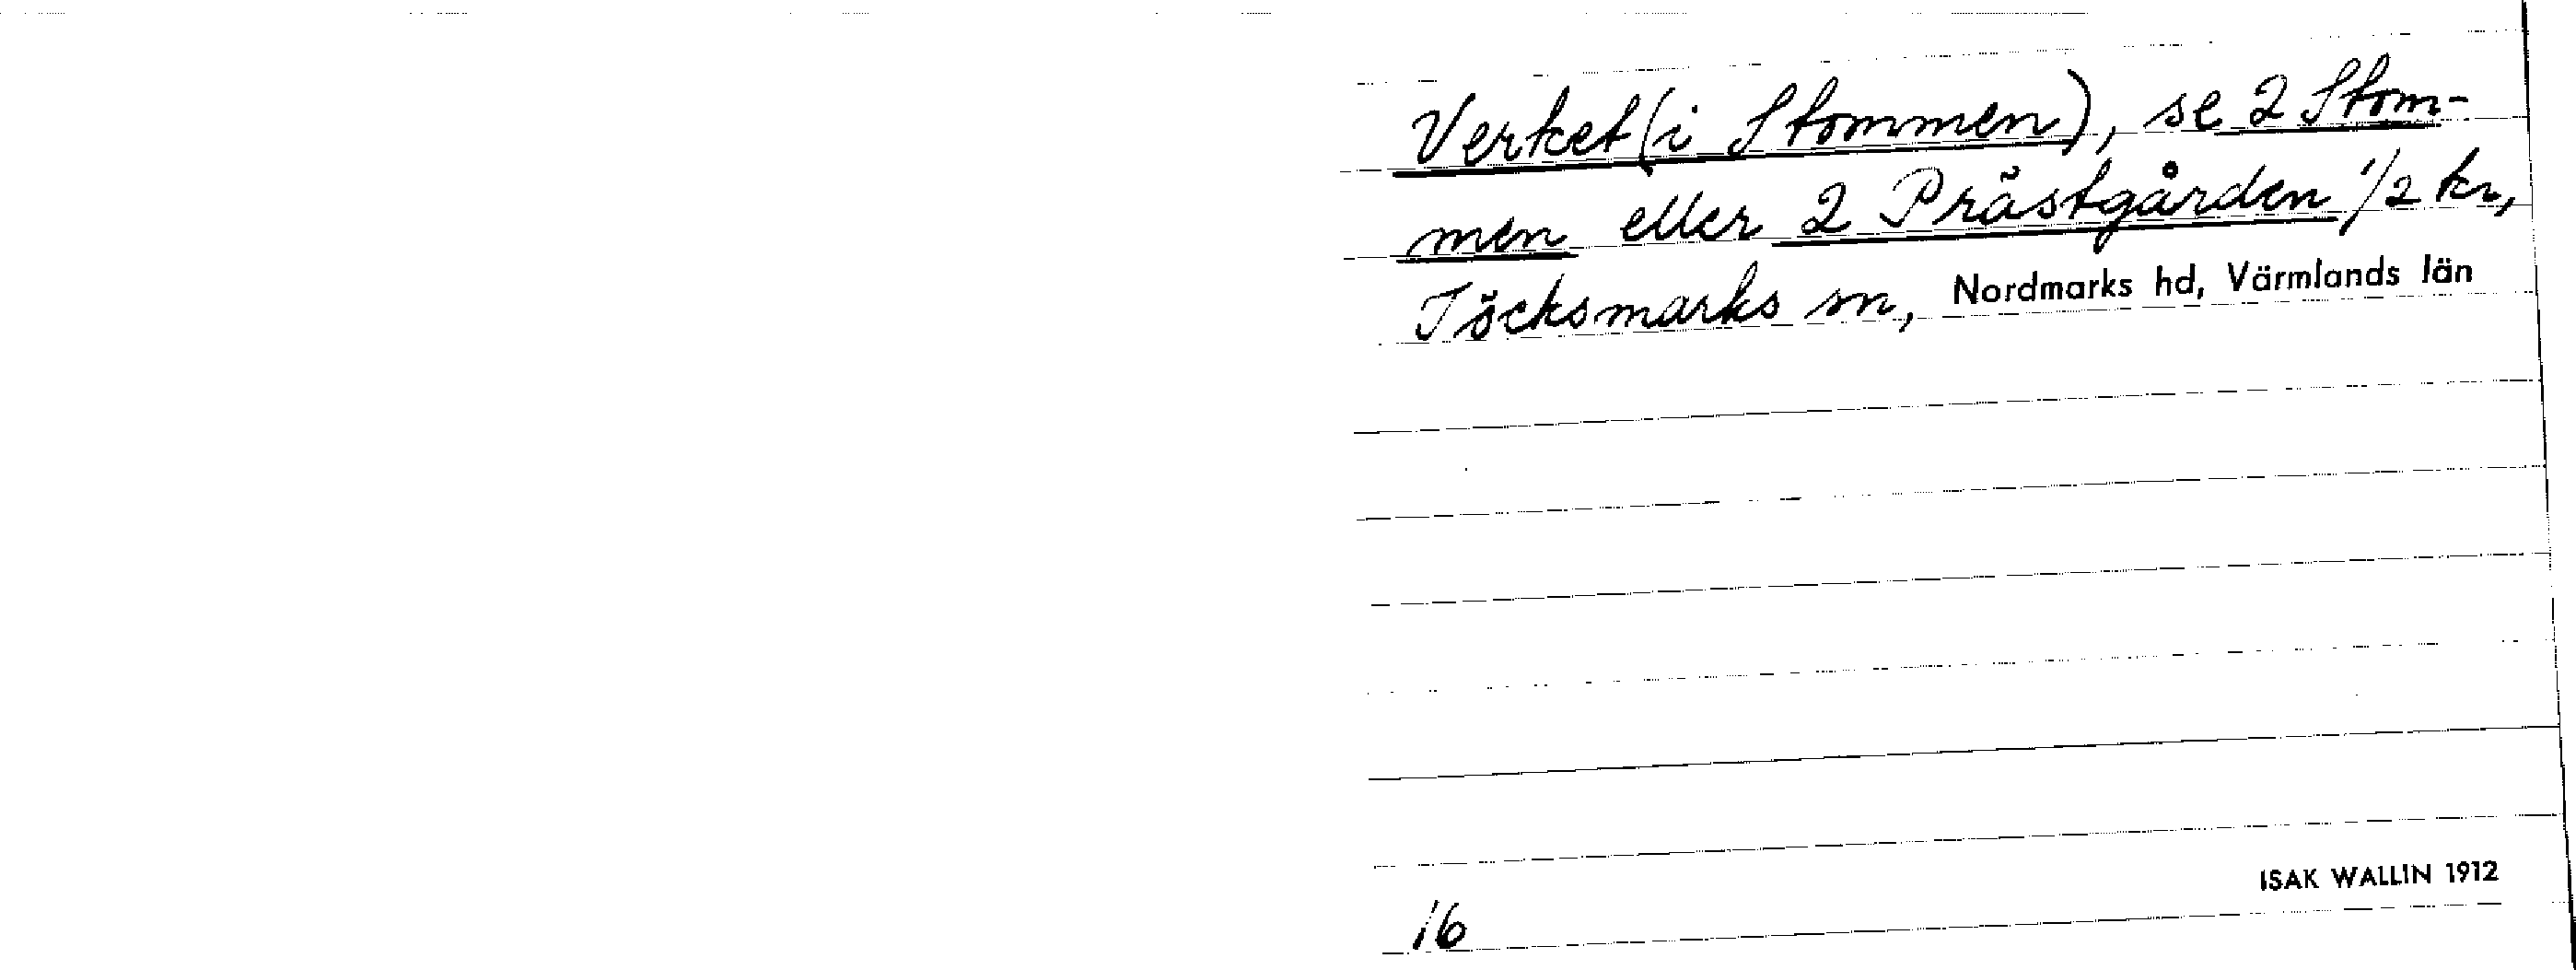 Verket (i Stommen), se 2 Stom-
men eller 2 Prästgården 1/2 kr,
Töcksmarks sn, Nordmarks hd, Värmlands län
ISAK WALLIN 1912
16